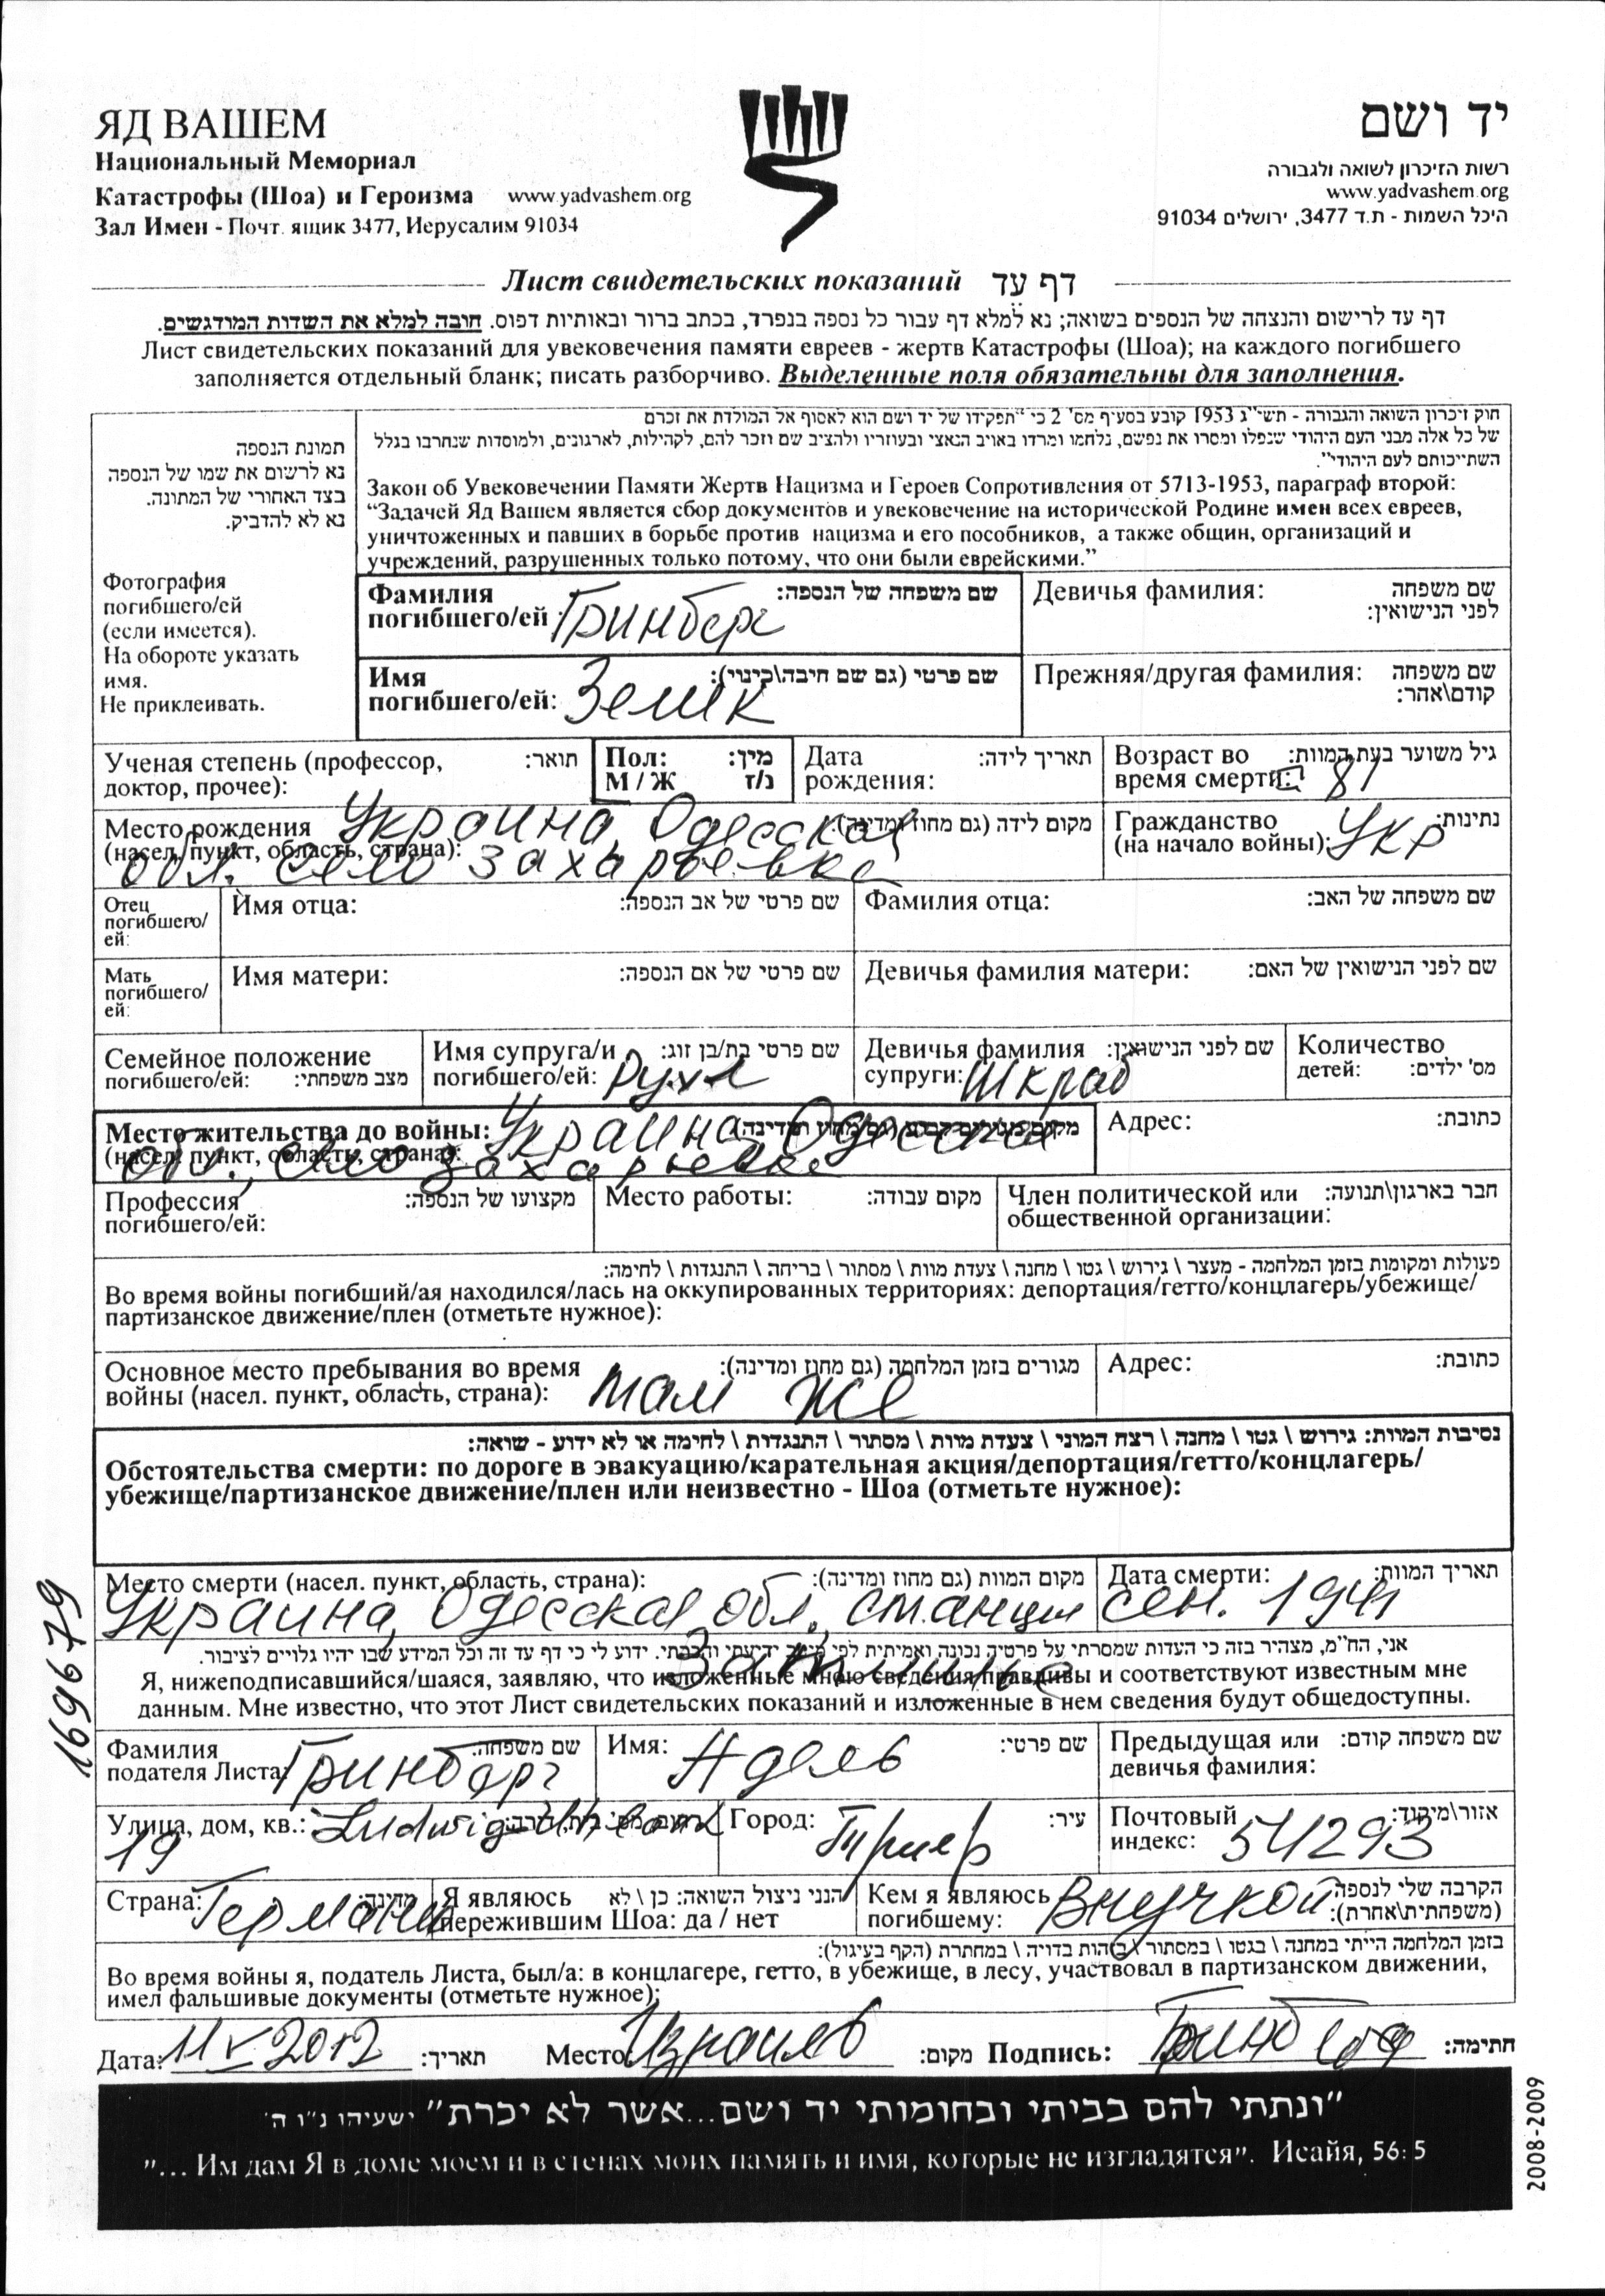 ЯД ВАШЕМ
Национальный Мемориал
Катастрофы (Шоа) и Героизма www.yadvashem.org
Зал Имен - Почт. ящик 3477, Иерусалим 91034
יד ושם
רשות הזיכרון לשואה ולגבורה
www.yadvashem.org
היכל השמות - ת.ד 3477, ירושלים 91034
Лист свидетельских показаний דף עד
דף עד לרישום והנצחה של הנספים בשואה; נא למלא דף עבור כל נספה בנפרד, בכתב ברור ובאותיות דפוס. חובה למלא את השדות המודגשים.
Лист свидетельских показаний для увековечения памяти евреев - жертв Катастрофы (Шоа); на каждого погибшего
заполняется отдельный бланк; писать разборчиво. Выделенные поля обязательны для заполнения.
תמונת הנספה
נא לרשום את שמו של הנספה
בצד האחורי של התמונה.
נא לא להדביק.
Фотография
погибшего/ей
(если имеется).
На обороте указать
имя.
Не приклеивать.
חוק זיכרון השואה והגבורה - תשי"ג 1953 קובע בסעיף מס' 2 כי "תפקידו של יד ושם הוא לאסוף אל המולדת את זכרם
של כל אלה מבני העם היהודי שנפלו ומסרו את נפשם, נלחמו ומרדו באויב הנאצי ובעוזריו ולהציב שם וזכר להם, לקהילות, לארגונים, ולמוסדות שנחרבו בגלל
השתייכותם לעם היהודי".
Закон об Увековечении Памяти Жертв Нацизма и Героев Сопротивления от 5713-1953, параграф второй:
“Задачей Яд Вашем является сбор документов и увековечение на исторической Родине имен всех евреев,
уничтоженных и павших в борьбе против нацизма и его пособников, а также общин, организаций и
учреждений, разрушенных только потому, что они были еврейскими.”
Фамилия погибшего/ей: Гринберг שם משפחה של הנספה:
Девичья фамилия: שם משפחה לפני הנישואין:
Имя погибшего/ей: Зелик שם פרטי (גם שם חיבה\כינוי):
Прежняя/другая фамилия: שם משפחה קודם\אחר:
Ученая степень (профессор, доктор, прочее): תואר:
Пол: М / Ж מין: ז/נ
Дата рождения: תאריך לידה:
Возраст во время смерти: 81 גיל משוער בעת המוות:
Место рождения (насел. пункт, область, страна): מקום לידה (גם מחוז ומדינה):
Украина Одесская
обл. село Захарьевка
Гражданство (на начало войны): Укр נתינות:
Отец погибшего/ей:
Имя отца: שם פרטי של אב הנספה:
Фамилия отца: שם משפחה של האב:
Мать погибшего/ей:
Имя матери: שם פרטי של אם הנספה:
Девичья фамилия матери: שם לפני הנישואין של האם:
Семейное положение погибшего/ей: מצב משפחתי:
Имя супруга/и погибшего/ей: Рухл שם פרטי בת/בן זוג:
Девичья фамилия супруги: Шкраб שם לפני הנישואין:
Количество детей: מס' ילדים:
Место жительства до войны: (насел. пункт, область, страна):
Украина, Одесская
обл., село Захарьевка
Адрес: כתובת:
Профессия погибшего/ей: מקצועו של הנספה:
Место работы: מקום עבודה:
Член политической или общественной организации: חבר בארגון\תנועה:
פעולות ומקומות בזמן המלחמה - מעצר \ גירוש \ גטו \ מחנה \ צעדת מוות \ מסתור \ בריחה \ התנגדות \ לחימה:
Во время войны погибший/ая находился/лась на оккупированных территориях: депортация/гетто/концлагерь/убежище/
партизанское движение/плен (отметьте нужное):
Основное место пребывания во время войны (насел. пункт, область, страна): там же מגורים בזמן המלחמה (גם מחוז ומדינה):
Адрес: כתובת:
נסיבות המוות: גירוש \ גטו \ מחנה \ רצח המוני \ צעדת מוות \ מסתור \ התנגדות \ לחימה או לא ידוע - שואה:
Обстоятельства смерти: по дороге в эвакуацию/карательная акция/депортация/гетто/концлагерь/
убежище/партизанское движение/плен или неизвестно - Шоа (отметьте нужное):
Место смерти (насел. пункт, область, страна): מקום המוות (גם מחוז ומדינה):
Украина, Одесская обл, станция
Затишье
Дата смерти: сен. 1941 תאריך המוות:
אני, הח"מ, מצהיר בזה כי העדות שמסרתי על פרטיה נכונה ואמיתית לפי מיטב ידיעתי והכרתי. ידוע לי כי דף עד זה וכל המידע שבו יהיו גלויים לציבור.
Я, нижеподписавшийся/шаяся, заявляю, что изложенные мною сведения правдивы и соответствуют известным мне
данным. Мне известно, что этот Лист свидетельских показаний и изложенные в нем сведения будут общедоступны.
Фамилия подателя Листа: Гринберг שם משפחה:
Имя: Адель שם פרטי:
Предыдущая или девичья фамилия: שם משפחה קודם:
Улица, дом, кв.: Ludwig
19
Город: Трир עיר:
Почтовый индекс: 54293 אזור\מיקוד:
Страна: Германия מדינה:
Я являюсь пережившим Шоа: да / нет הנני ניצול השואה: כן \ לא
Кем я являюсь погибшему: Внучкой הקרבה שלי לנספה (משפחתית\אחרת):
בזמן המלחמה הייתי במחנה \ בגטו \ במסתור \ בזהות בדויה \ במחתרת (הקף בעיגול):
Во время войны я, податель Листа, был/а: в концлагере, гетто, в убежище, в лесу, участвовал в партизанском движении,
имел фальшивые документы (отметьте нужное):
Дата: 11 V 2012 תאריך: Место: Израиль מקום: Подпись: חתימה:
"ונתתי להם בביתי ובחומותי יד ושם...אשר לא יכרת" ישעיהו נ"ו ה'
"... Им дам Я в доме моем и в стенах моих память и имя, которые не изгладятся". Исайя, 56:5
169679
2008-2009